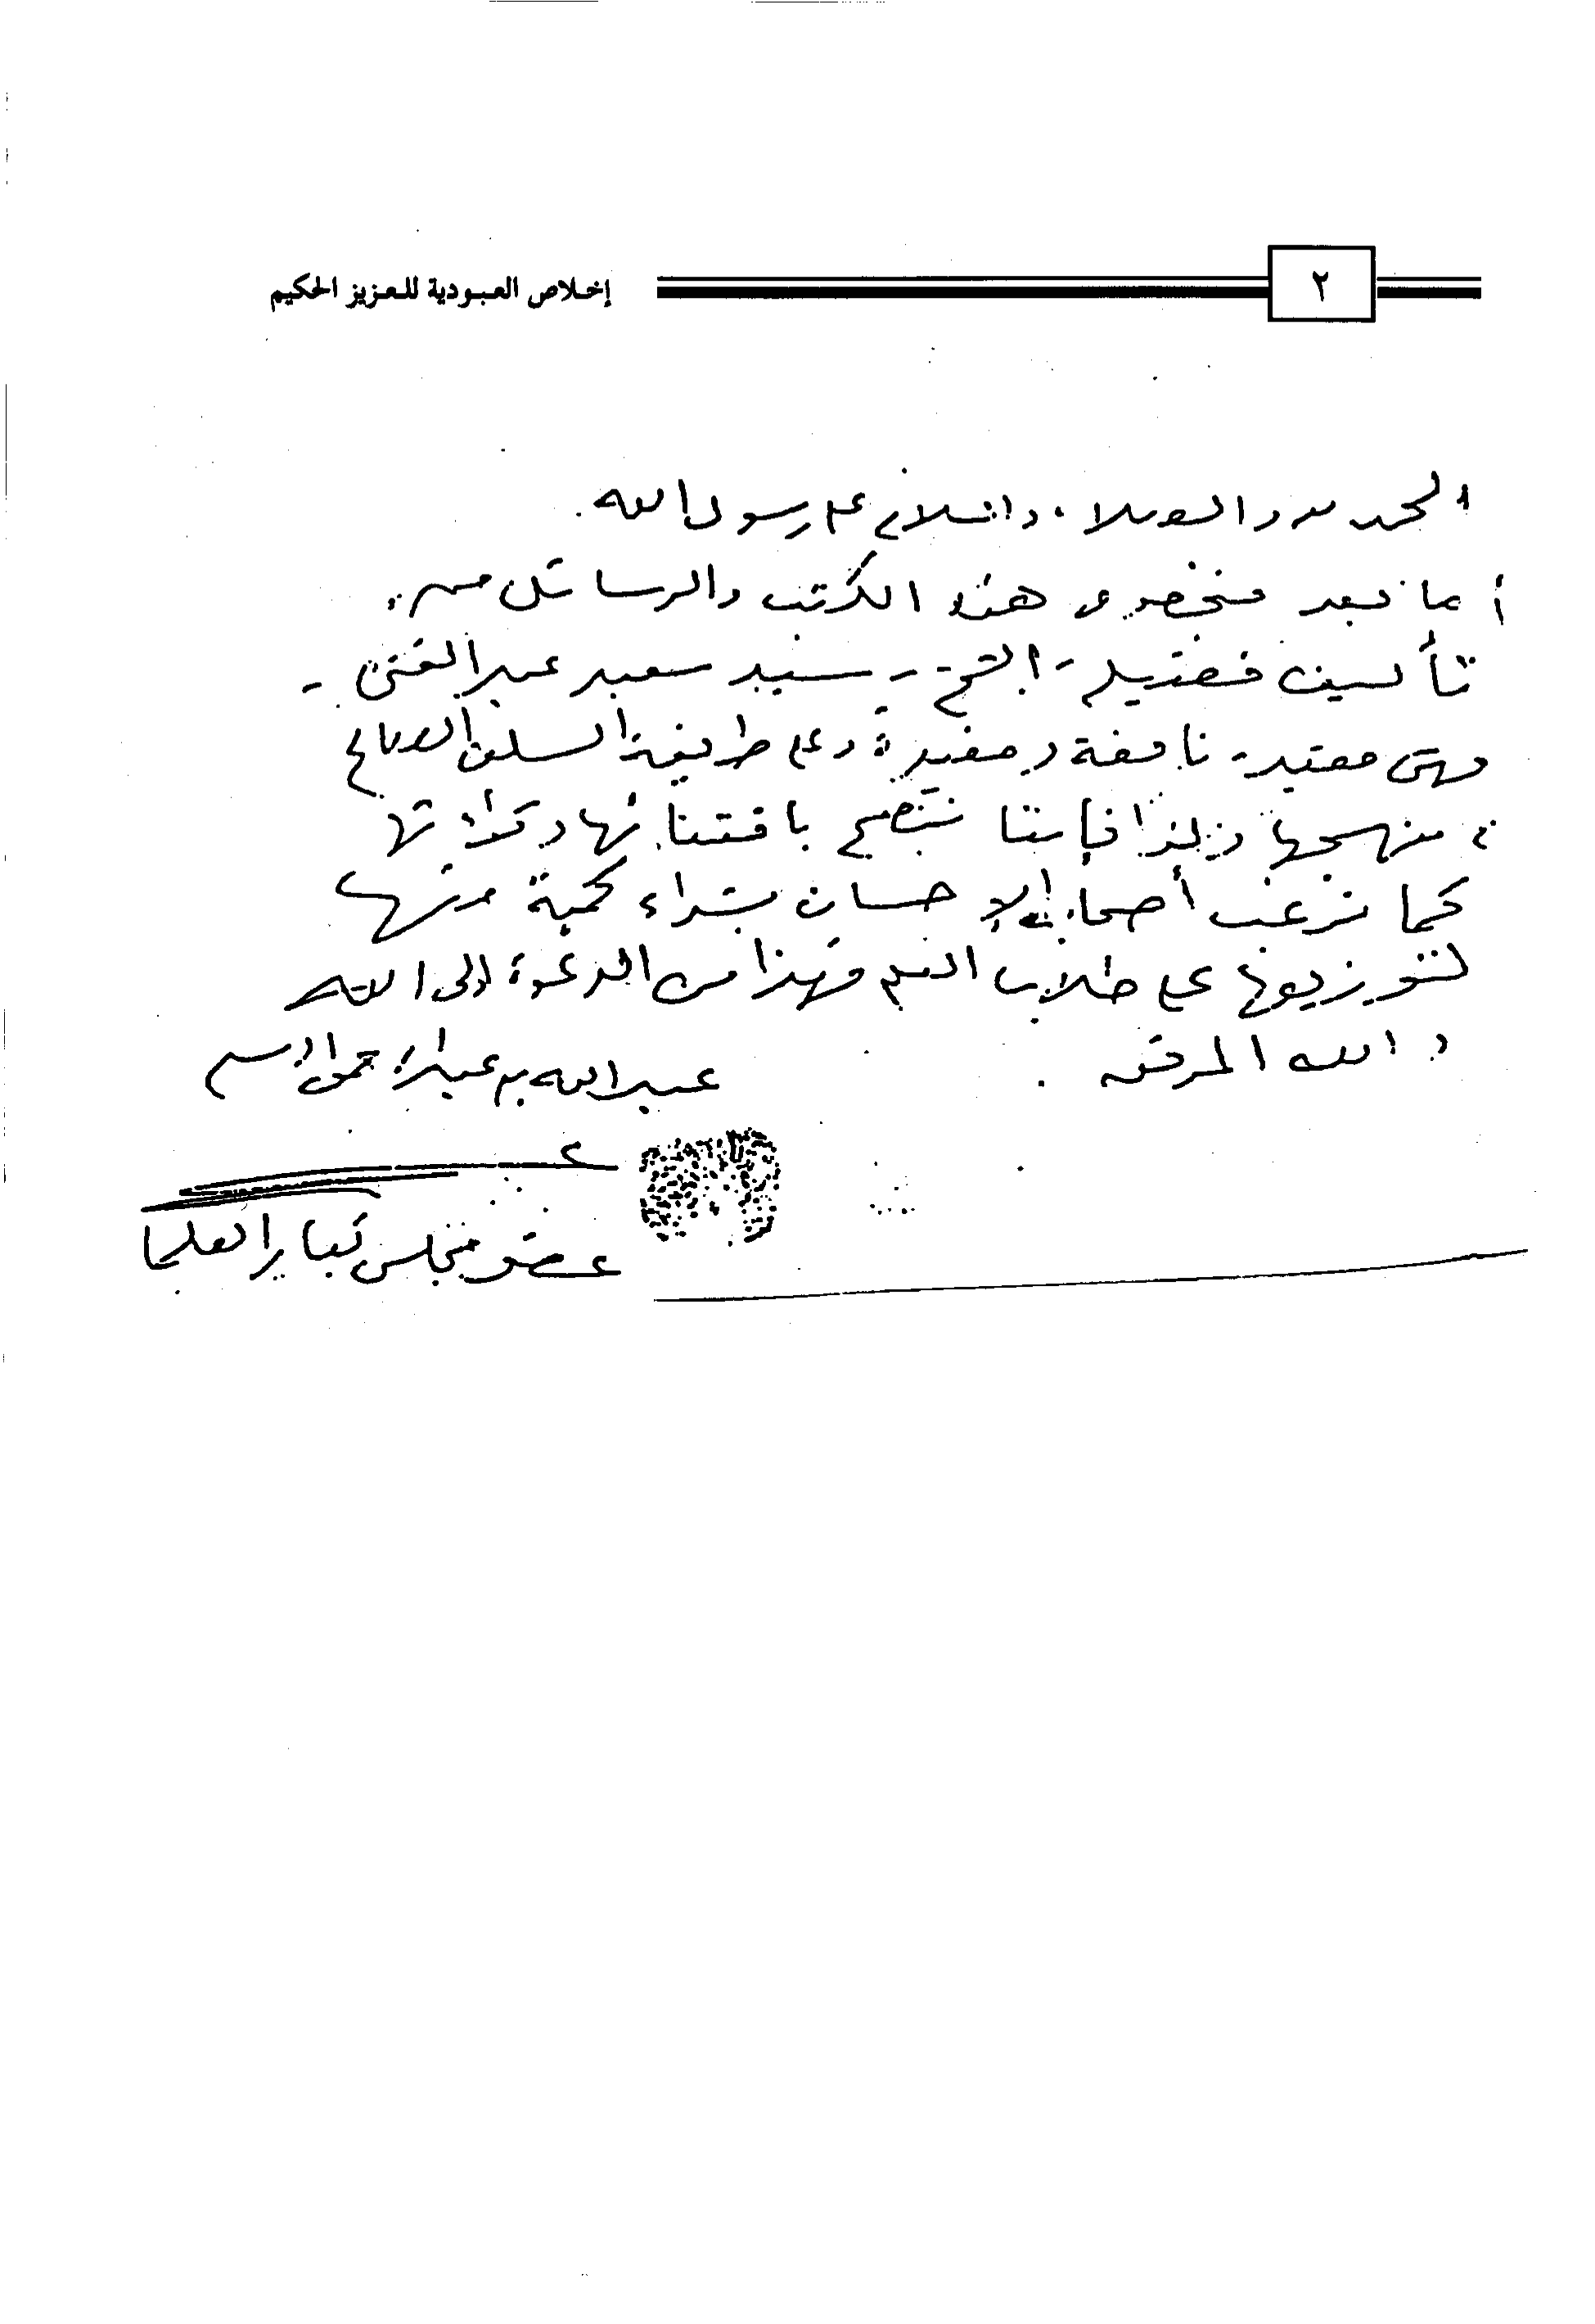 ٢
إخلاص العبودية للعزيز الحكيم
الحمد لله والصلاة والسلام على رسول الله.
أما بعد فبخصوص هذه الكتب والرسائل من
تأليف فضيلة الشيخ - سيد سعيد عبدالغني -
فهي مفيدة نافعة ومفيدة وعلى طريقة السلف الصالح
في منهجها ولذا فإننا ننصح باقتنائها وقراءتها
كما نرغب أصحاب الإحسان بشراء كمية منها
لتوزيعها على طلاب العلم فهذا من الدعوة إلى الله
والله الموفق.
عبدالله بن
عضو مجلس كبار العلما